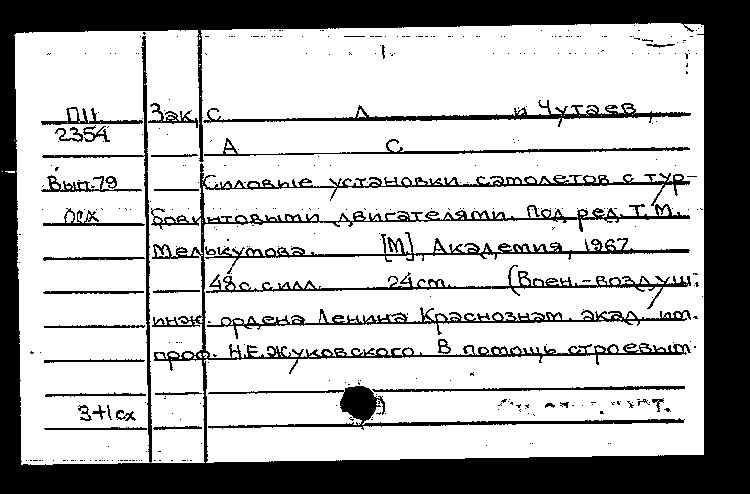 ПII Зак, С Л и Чутаев,
2354 А С
Вып.79 Силовые установки самолетов с тур-
бовинтовыми двигателями. Под ред. Т.М.
Мелькумова. [М], Академия, 1967.
48с. с илл. 24см. (Воен.-воздуш.
инж. ордена Ленина Краснознам. акад. им.
проф. Н.Е.Жуковского. В помощь строевым
3+1сх